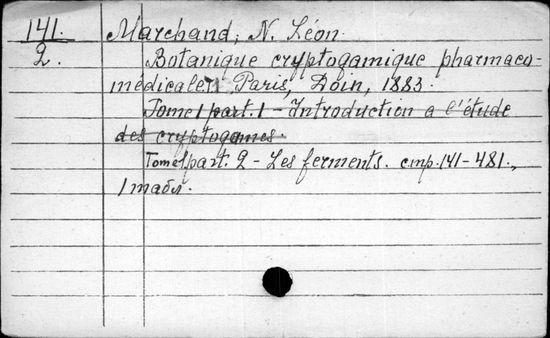 141. Marchand, N. Léon.
2. Botanique cryptogamique pharmaco-
médicale. Paris, Doin, 1883.
Tome 1 part. 1 - Introduction a l'étude
des cryptogames.
Tome 1 part. 2 - Les ferments. стр. 141-481.,
1 табл.